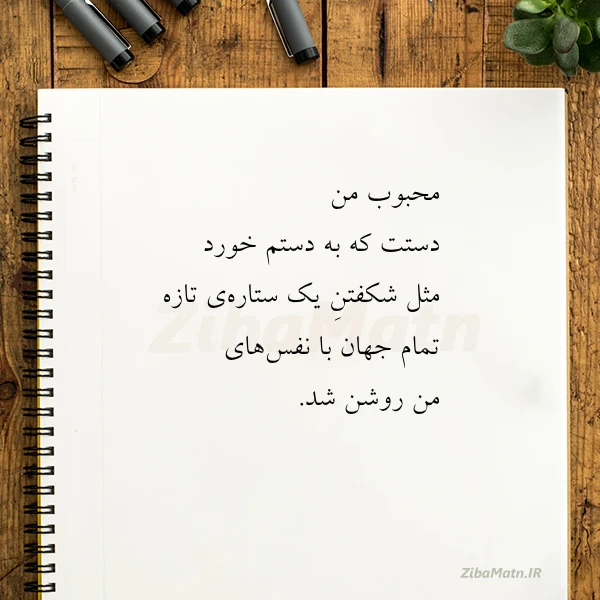 محبوب من
دستت که به دستم خورد
مثل شکفتنِ یک ستاره‌ی تازه
تمام جهان با نفس‌های
من روشن شد.
ZibaMatn
ZibaMatn.IR